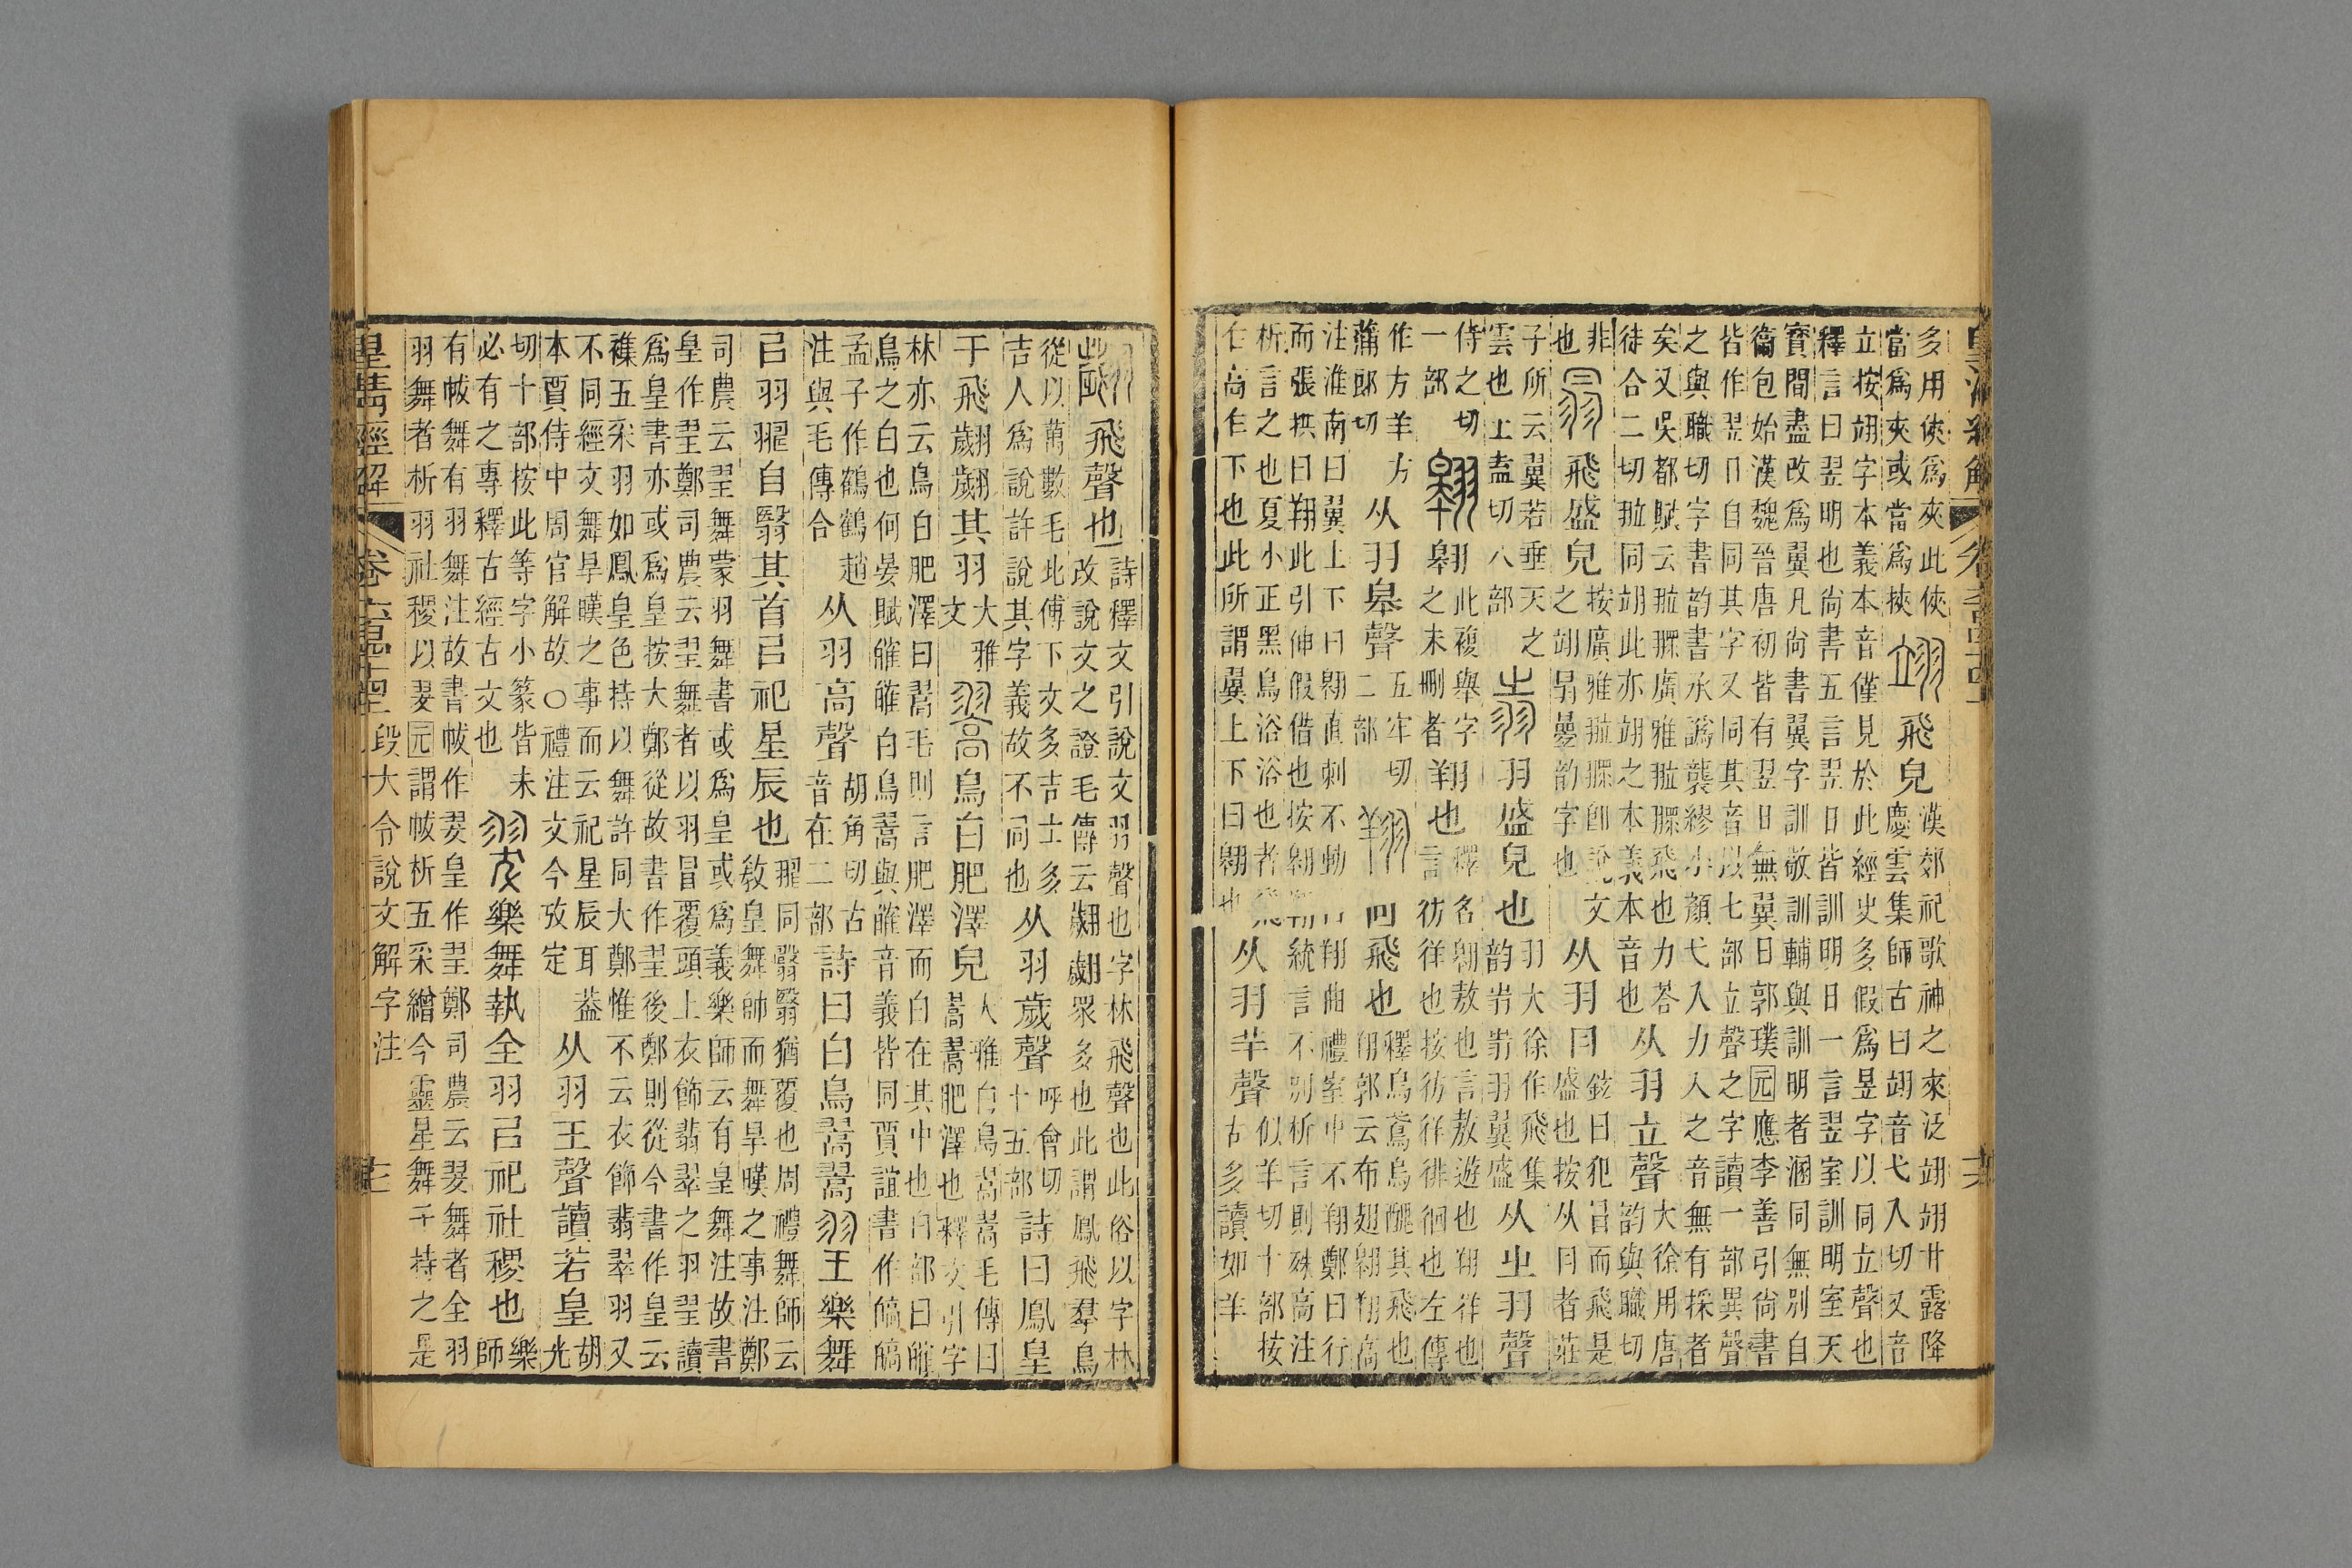 多用俠爲夾此俠
當爲夾或當爲挾
翊飛皃
漢郊祀歌神之來泛翊翊甘露降
慶雲集師古曰翊音弋入切又音
立按翊字本義本音僅見於此經史多假爲昱字以同立聲也
釋言曰翌明也尚書五言翌日皆訓明日一言翌室訓明室天
寶間盡改爲翼凡尚書翼字訓敬訓輔與訓明者溷同無別自
衞包始漢魏晉唐初皆有翌日無翼日郭璞元應李善引尚書
皆作翌日自同其字又同其音以七部立聲之字讀一部異聲
之與職切字書韵書承譌襲繆小顏弋入力入之音無有採者
矣又吳都賦云廣雅飛也力荅
徒合二切同翊此亦翊之本義本音也
从羽立聲
大徐用唐
韵與職切
非
也
飛盛皃
按廣雅卽說文
之韵字也
从羽冃
鉉曰犯冒而飛是
盛也按从冃者莊
子所云翼若垂天之
雲也土盍切八部
羽盛皃也
羽大徐作飛集
韵羽翼盛
从㞢羽聲
侍之切
一部
翱翱
此複舉字
之未刪者
翔也
釋名翱敖也言敖遊也翔佯也
言彷徉也按彷徉徘徊也左傳
作方羊方
蒲郎切
从羽皋聲
五牢切
二部
翔回飛也
釋鳥鳶烏醜其飛也
翔郭云布翅翱翔高
注淮南曰翼上下曰翱直刺不動曰翔曲禮室中不翔鄭曰行
而張拱曰翔此引伸假借也按翱翔統言不別析言則殊高注
析言之也夏小正黑鳥浴浴也者飛
乍高乍下也此所謂翼上下曰翱也
从羽羊聲
似羊切十部按
古多讀如羊
翽飛聲也
詩釋文引說文羽聲也字林飛聲也此俗以字林
改說文之證毛傳云翽翽眾多也此謂鳳飛羣鳥
從以萬數毛此傅下文多吉士多
吉人爲說許說其字義故不同也
从羽歲聲
呼會切
十五部
詩曰鳳皇
于飛翽翽其羽
大雅
文
翯鳥白肥澤皃
大雅白鳥翯翯毛傳曰
翯翯肥澤也釋文引字
林亦云鳥白肥澤曰翯毛則言肥澤而白在其中也白部曰㿥
鳥之白也何晏賦㿥㿥白鳥翯與㿥音義皆同賈誼書作皜皜
孟子作鶴鶴趙
注與毛傳合
从羽高聲
胡角切古
音在二部
詩曰白鳥翯翯
翌樂舞
㠯羽䍿自翳其首㠯祀星辰也
䍿同翳翳猶覆也周禮舞師云
敎皇舞帥而舞旱暵之事注鄭
司農云翌舞蒙羽舞書或爲皇或爲義樂師云有皇舞注故書
皇作翌鄭司農云翌舞者以羽冒覆頭上衣飾翡翠之羽翌讀
爲皇書亦或爲皇按大鄭從故書作翌後鄭則從今書作皇云
襍五采羽如鳳皇色持以舞許同大鄭惟不云衣飾翡翠羽又
不同經文舞旱暵之事而云祀星辰耳葢
本賈侍中周官解故○禮注文今攷定
从羽王聲讀若皇
胡
光
切十部按此等字小篆皆未
必有之專釋古經古文也
翇樂舞執全羽㠯祀社稷也
樂
師
有帗舞有羽舞注故書帗作翇皇作翌鄭司農云翇舞者全羽
羽舞者析羽社稷以翇元謂帗析五采繒今靈星舞子持之是
皇淸經解 卷六百四十四 段大令說文解字注